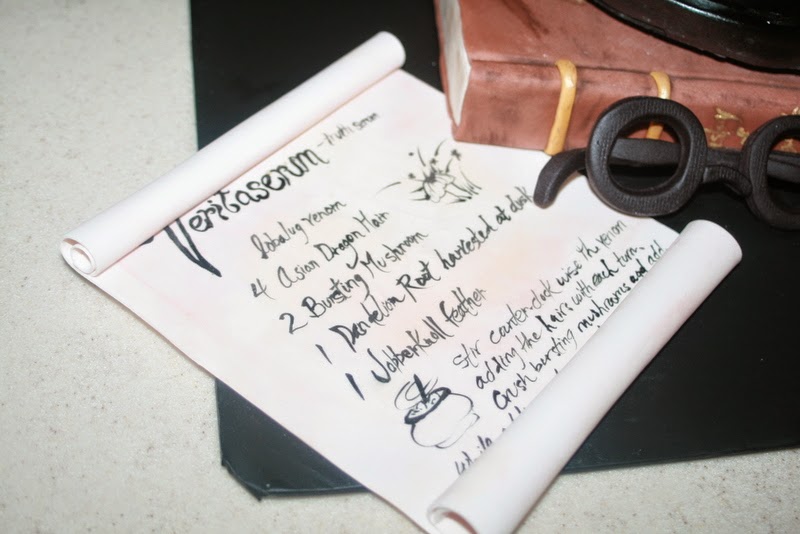 Veritaserum - truth serum
Lobalug venom
4 Asian Dragon Hair
2 Bursting Mushroom
1 Dandelion Root harvested at dusk
1 Jobberknoll feather
Stir counter clock wise the venom
adding the hairs with each turn.
Crush bursting mushrooms and add